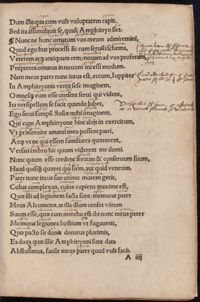 Dum illa quacum vult voluptatem capit.
Sed ita assimulavit se, quasi Amphitryo siet.
¶ Nunc ne hunc ornatum vos meum admiremini,
Quod ego huc processi sic cum servili schema,
Veterem atque antiquam rem, novam ad vos proferam
Propterea ornatus in novum incessi modum.
Nam meus pater nunc intus est, eccum, Iuppiter
In Amphitryonis vertit sese imaginem,
Omnesque eum esse censent servi qui vident,
Ita versipellem se facit quando lubet,
Ego servi sumpsi Sosiae mihi imaginem,
Qui cum Amphitryone hinc abiit in exercitum,
Vt praeservire amanti meo possem patri,
Atque ut ne qui essem familiares quaererent,
Versari crebro hic quum viderent me domi.
Nunc quum esse credent servum & conservum suum,
Haud quisquam quaeret qui siem, aut quid venerim.
Pater nunc intus suo animo morem gerit,
Cubat complexus, cuius cupiens maxime est,
Quae illi ad legionem facta sunt, memorat pater
Meus Alcumenae, at illa illum censet virum
Suum esse, quae cum moecho est. ibi nunc meus pater
Memorat legiones hostium ut fugaverit,
Quo pacto sit donis donatus plurimis,
Ea dona quae illic Amphitryoni sunt data
Abstulimus, facile meus pater quod vult facit.
A iiij